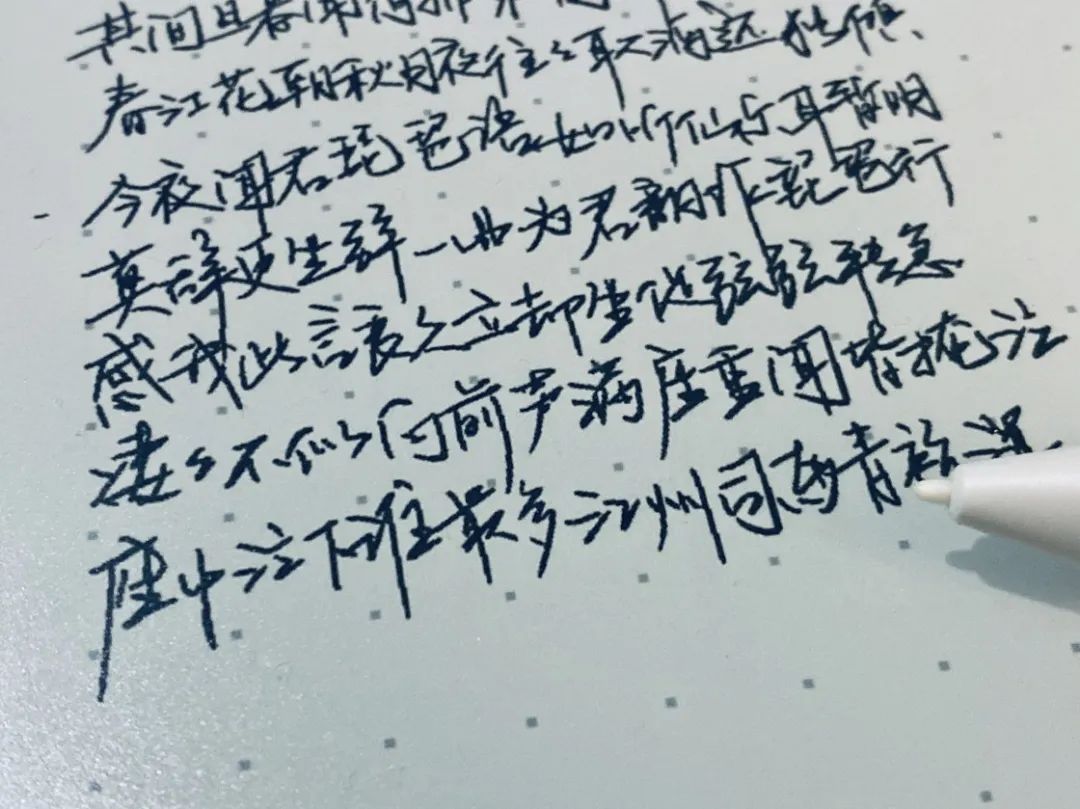 其间旦暮闻何物
春江花朝秋月夜往往取酒还独倾
今夜闻君琵琶语如听仙乐耳暂明
莫辞更坐弹一曲为君翻作琵琶行
感我此言良久立却坐促弦弦转急
凄凄不似向前声满座重闻皆掩泣
座中泣下谁最多江州司马青衫湿